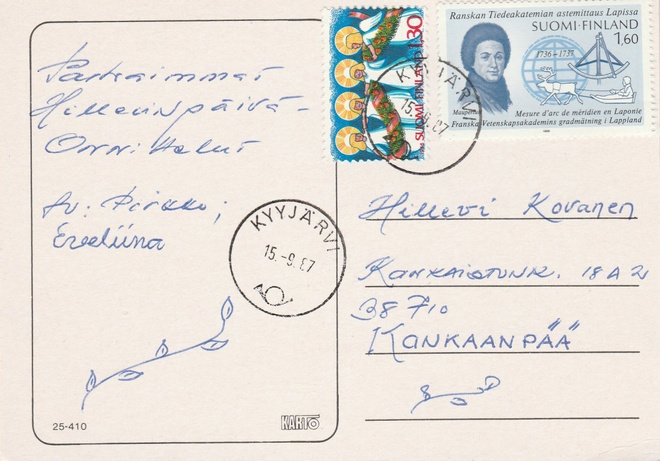 Parhaimmat
Hillevinpäivä-
Onnittelut
tv: Pirkko ;
Eveliina
25-410
KARTO
KYYJÄRVI
15.-9.87
SUOMI FINLAND 1,30
KYYJÄRVI
15.-9.87
Ranskan Tiedeakatemian astemittaus Lapissa
SUOMI-FINLAND
1,60
1736-1737
Mesure d'arc de méridien en Laponie
Franska Vetenskapsakademins gradmätning i Lappland
Hillevi Kovanen
Kankaistunk. 18 A 2
38710
KANKAANPÄÄ